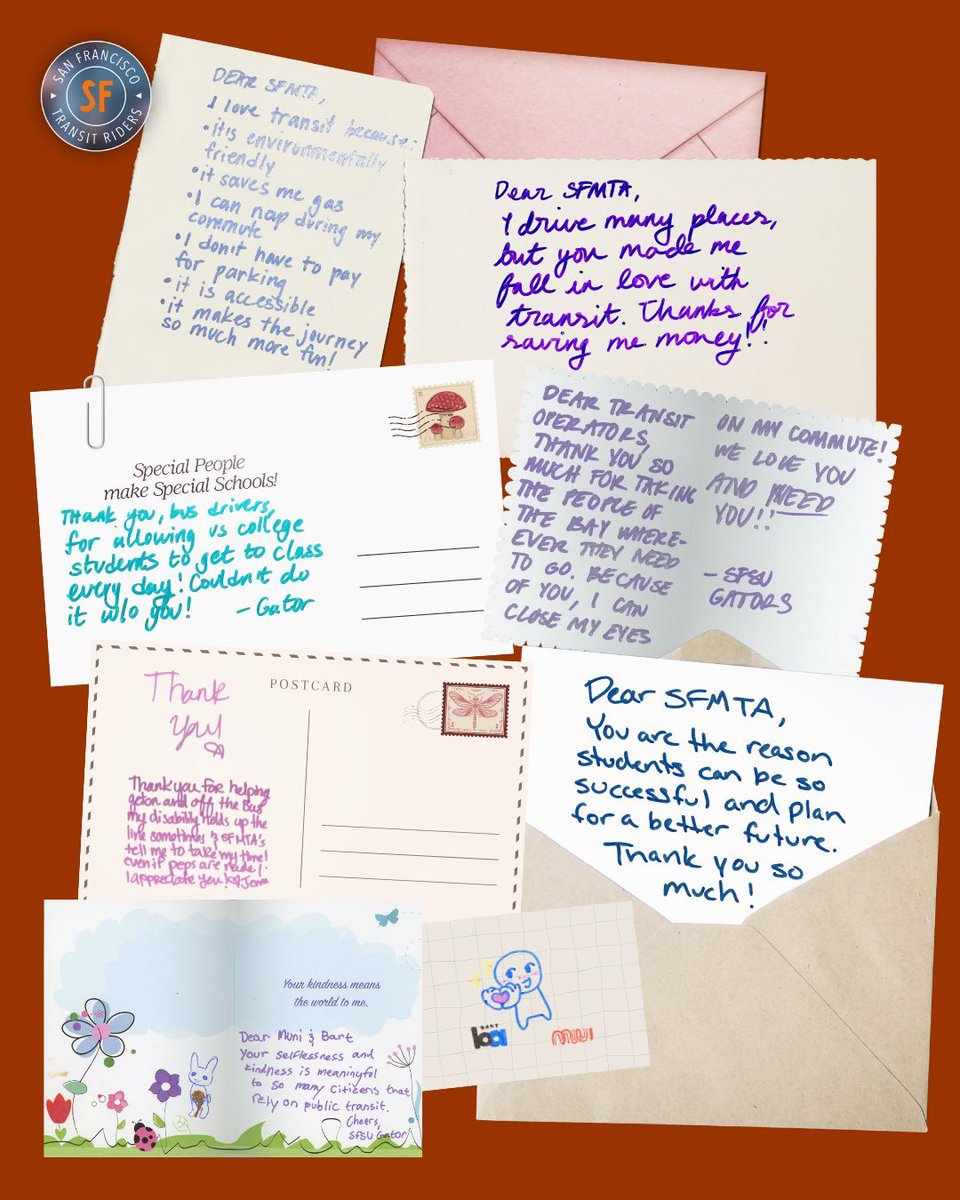 SAN FRANCISCO
SF
TRANSIT RIDERS
DEAR SFMTA,
I love transit because:
• it is environmentally
friendly
• it saves me gas
• I can nap during my
commute
• I don't have to pay
for parking
• it is accessible
• it makes the journey
so much more fun!
Dear SFMTA,
I drive many places,
but you made me
fall in love with
transit. Thanks for
saving me money!!
Special People
make Special Schools!
Thank you, bus drivers,
for allowing us college
students to get to class
every day! Couldn't do
it w/o you! - Gator
DEAR TRANSIT
OPERATORS,
THANK YOU SO
MUCH FOR TAKING
THE PEOPLE OF
THE BAY WHERE-
EVER THEY NEED
TO GO. BECAUSE
OF YOU, I CAN
CLOSE MY EYES
ON MY COMMUTE!
WE LOVE YOU
AND NEED
YOU!!
- SFSU
GATORS
Thank
you!
POSTCARD
Thank you for helping
get on and off the Bus
my disability holds up the
line sometimes & SFMTA's
tell me to take my time!
even if peps are rude!
I appreciate you!
Dear SFMTA,
You are the reason
students can be so
successful and plan
for a better future.
Thank you so
much!
Your kindness means
the world to me.
Dear Muni & Bart
Your selflessness and
kindness is meaningful
to so many citizens that
rely on public transit.
Cheers,
SFSU Gator
BART
ba
MUNI